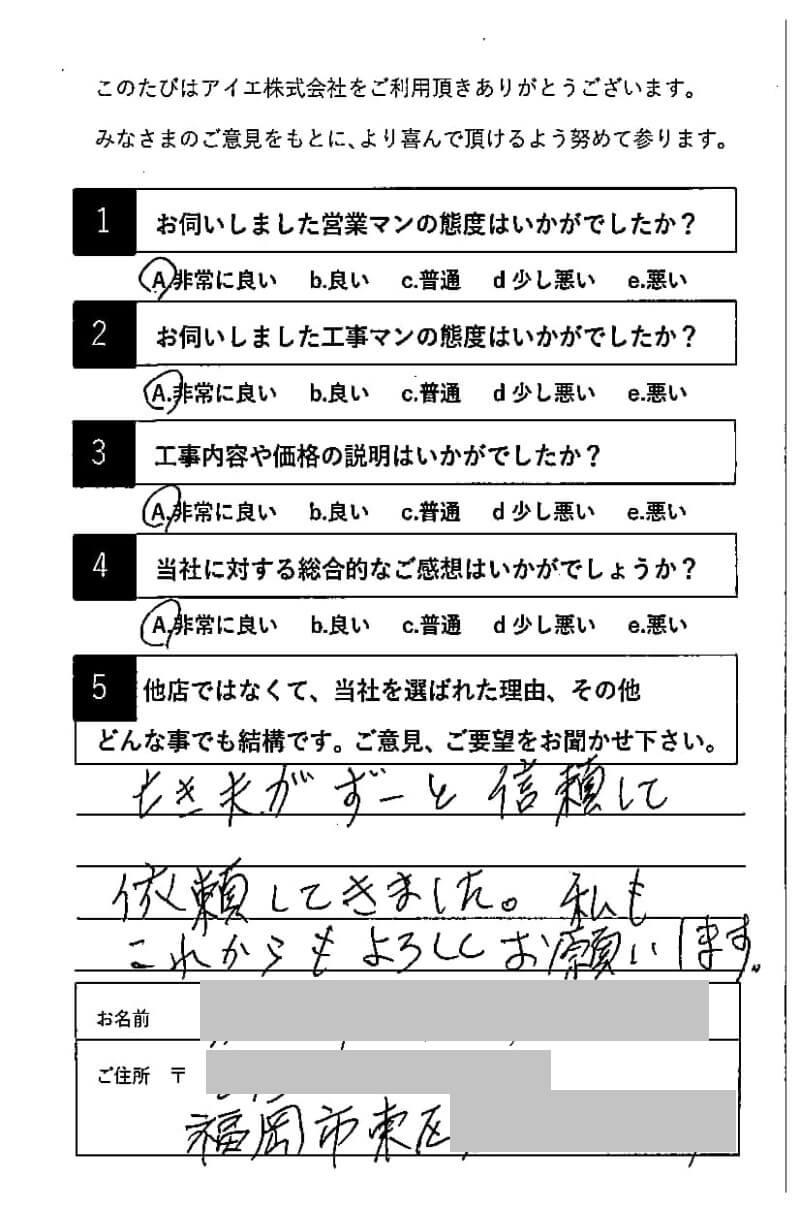 このたびはアイエ株式会社をご利用頂きありがとうございます。
みなさまのご意見をもとに、より喜んで頂けるよう努めて参ります。
1 お伺いしました営業マンの態度はいかがでしたか？
A.非常に良い b.良い c.普通 d 少し悪い e.悪い
2 お伺いしました工事マンの態度はいかがでしたか？
A.非常に良い b.良い c.普通 d 少し悪い e.悪い
3 工事内容や価格の説明はいかがでしたか？
A.非常に良い b.良い c.普通 d 少し悪い e.悪い
4 当社に対する総合的なご感想はいかがでしょうか？
A.非常に良い b.良い c.普通 d 少し悪い e.悪い
5 他店ではなくて、当社を選ばれた理由、その他
どんな事でも結構です。ご意見、ご要望をお聞かせ下さい。
亡き夫がずーと信頼して
依頼してきました。私も
これからもよろしくお願いします。
お名前
ご住所 〒
福岡市東区